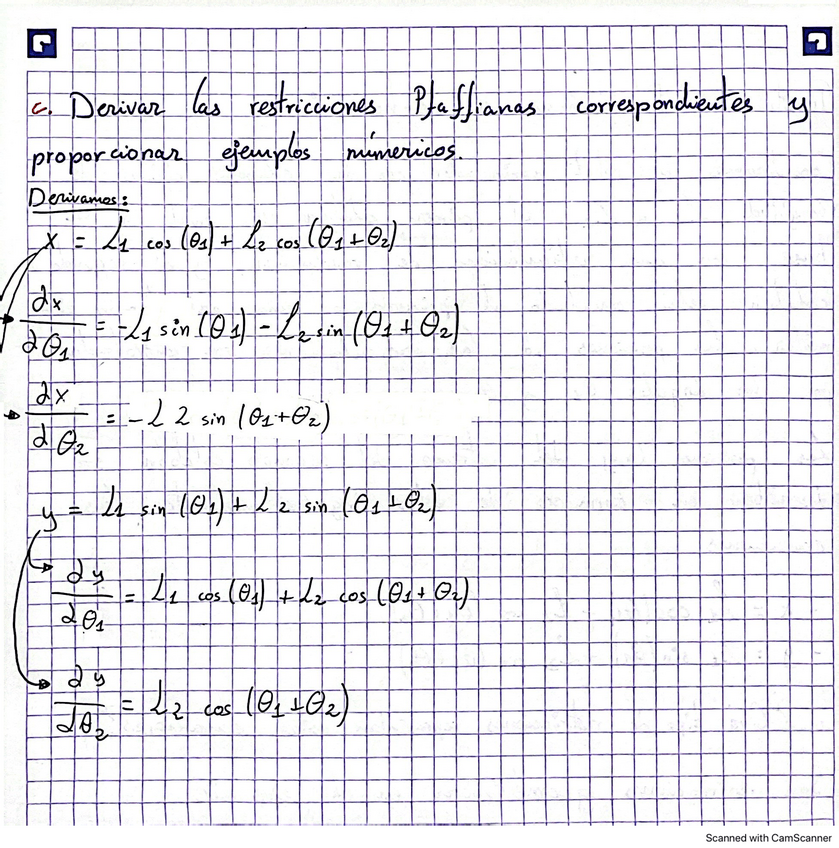 c. Derivar las restricciones Pfaffianas correspondientes y
proporcionar ejemplos númericos.
Derivamos:
x = L1 cos (θ1) + L2 cos (θ1 + θ2)
∂x/∂θ1 = -L1 sin (θ1) - L2 sin (θ1 + θ2)
∂x/∂θ2 = - L2 sin (θ1+θ2)
y = L1 sin (θ1) + L2 sin (θ1+θ2)
∂y/∂θ1 = L1 cos (θ1) + L2 cos (θ1+ θ2)
∂y/∂θ2 = L2 cos (θ1+θ2)
Scanned with CamScanner